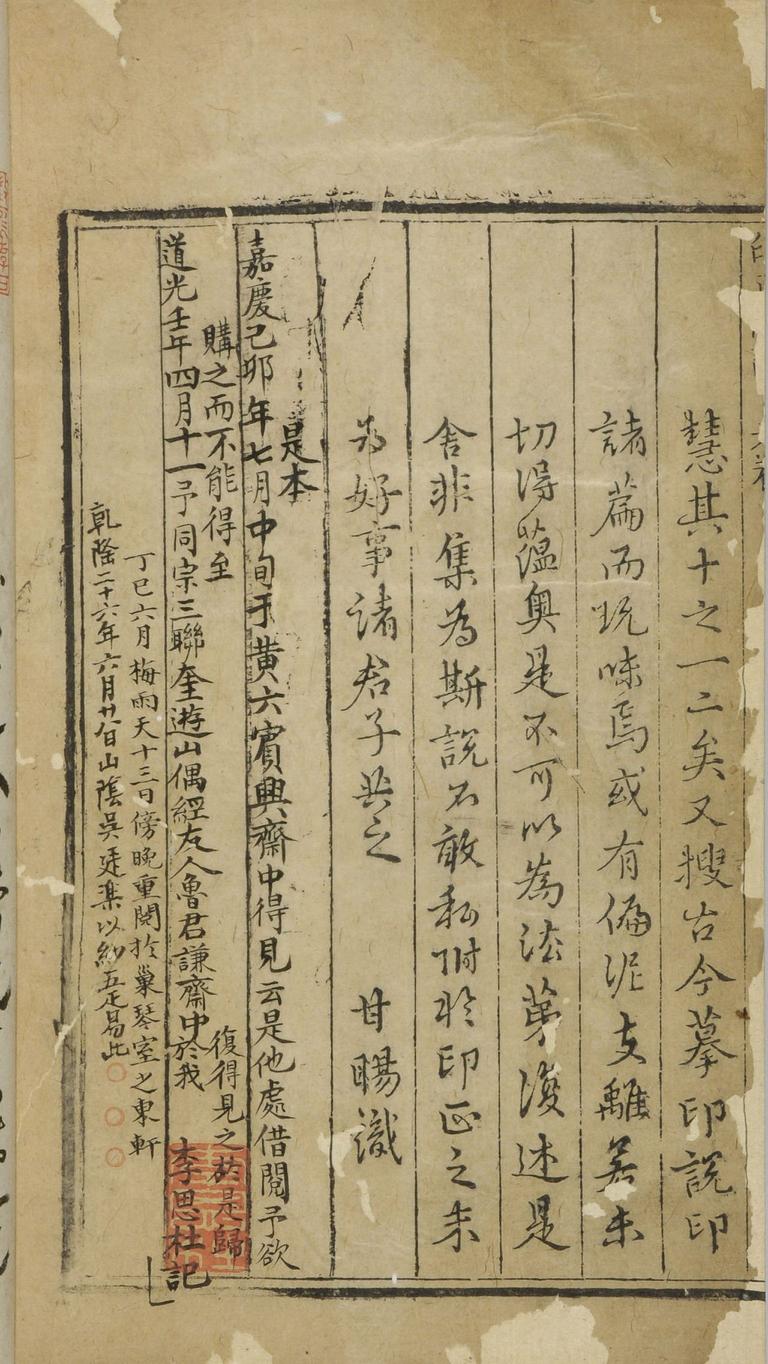 慧其十之一二矣又搜古今摹印說印
諸篇而玩味焉或有偏泥支離若未
切得蘊奧是不可以為法苐復述是
舍非集為斯說不敢私附於印正之末
為好事諸君子共之 甘暘識
是本
嘉慶己卯年七月中旬于黄六賓興齋中得見云是他處借閱予欲
購之而不能得至
道光壬年四月十一予同宗三聯奎遊山偶經友人魯君謙齋中
復得見之於是歸
於我 李思杜記
丁巳六月梅雨天十三日傍晚重閱於巢琴室之東軒
乾隆二十六年六月廿日山陰吳以紗五疋易此